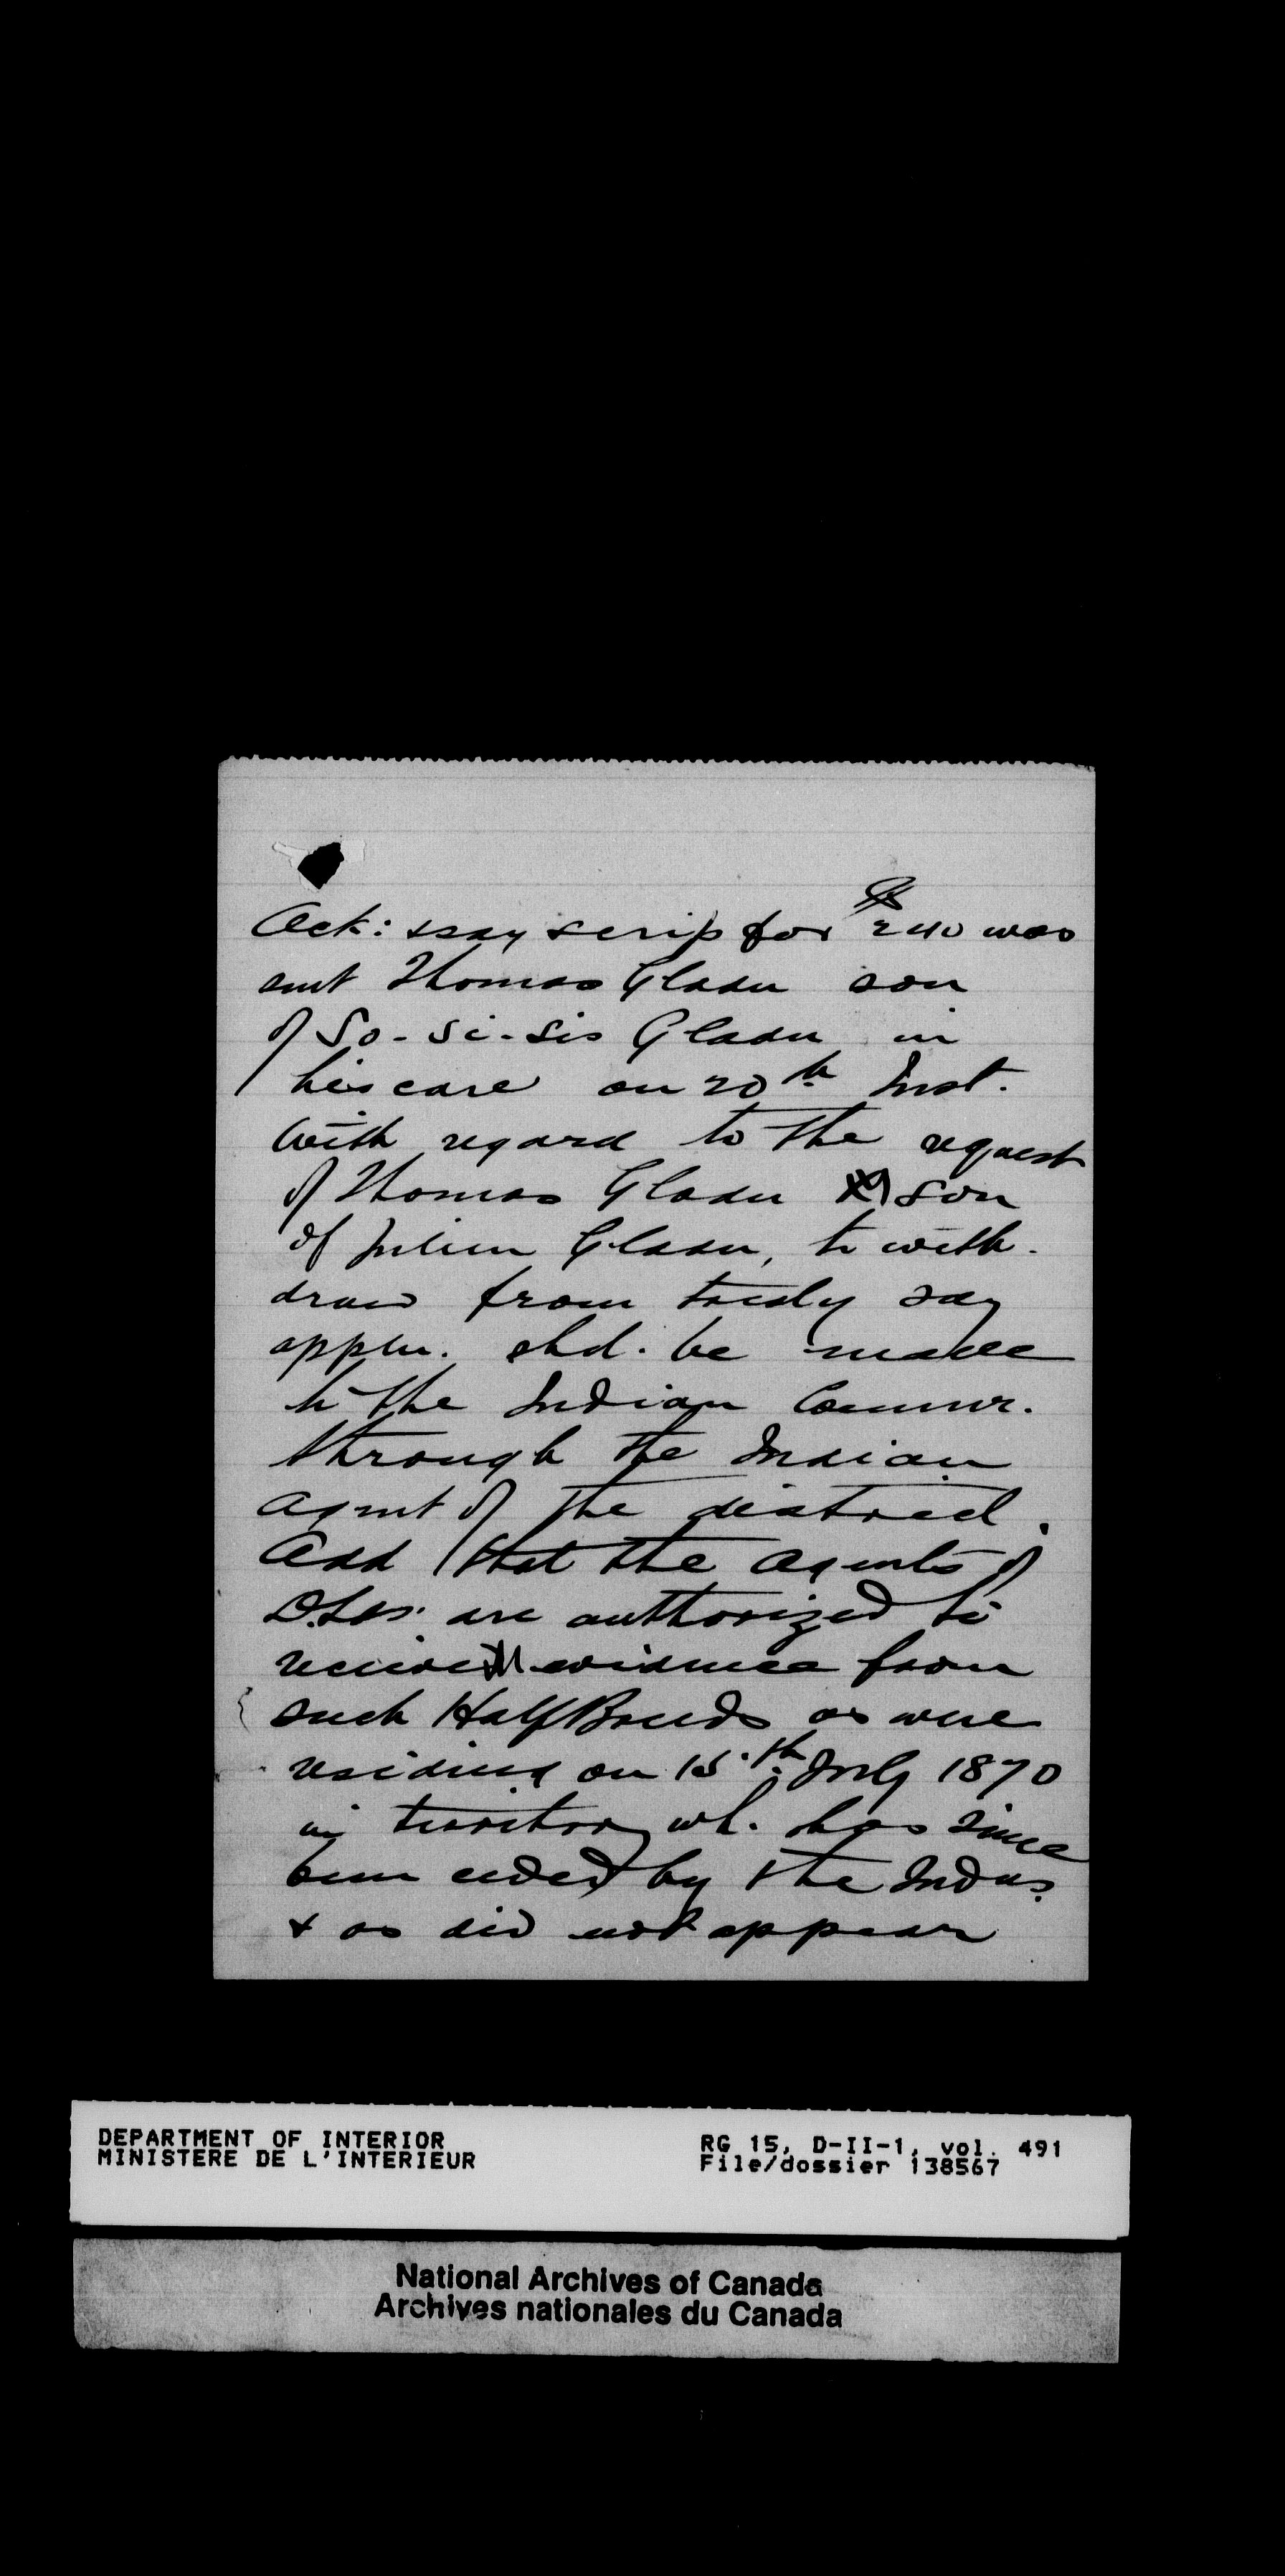 Ack: & say scrip for $240 was
sent Thomas Gladu son
of So-si-sis Gladu in
his care on 20th Inst.
With regard to the request
of Thomas Gladu son
of Julien Gladu, to with-
draw from treaty say
appln. shd. be made
to the Indian Commr.
through the Indian
Agent of the district.
Add that the Agents of
D.Lds. are authorized to
receive evidence from
such Half Breeds as were
residing on 15th July 1870
in territory wh. has since
been ceded by the Indns.
& as did not appear
DEPARTMENT OF INTERIOR
MINISTERE DE L'INTERIEUR
RG 15, D-II-1, vol. 491
File/dossier 138567
National Archives of Canada
Archives nationales du Canada